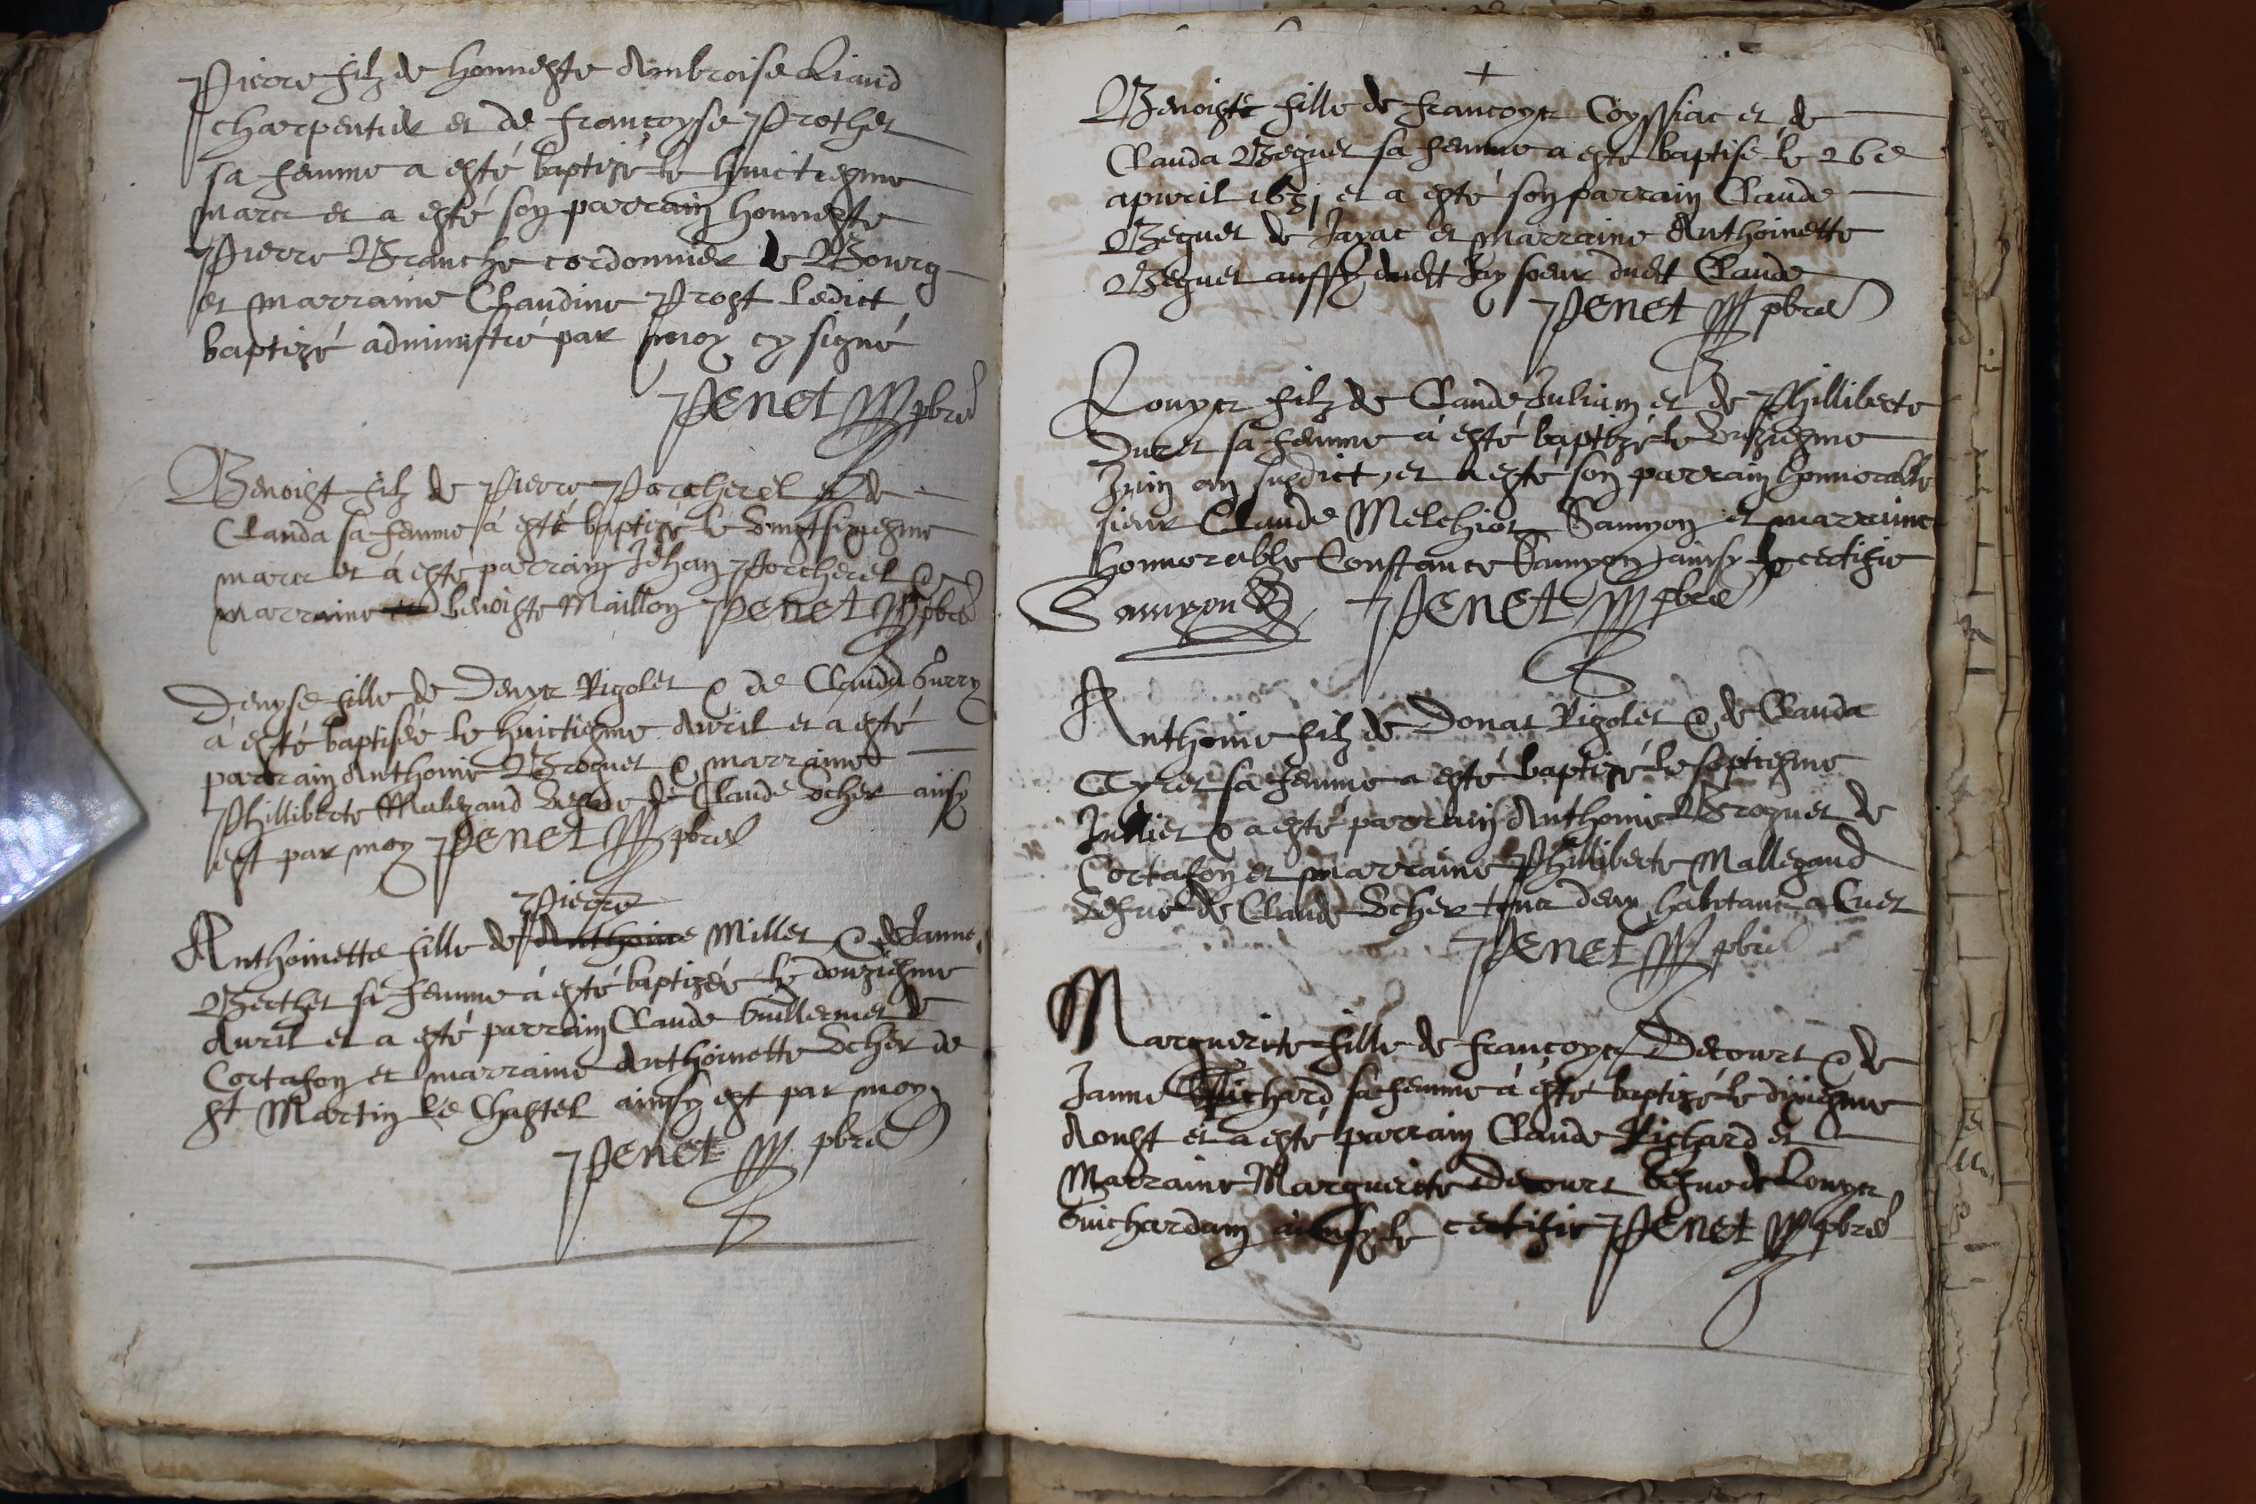 Pierre filz de honneste Ambroise Liaud
charpentier et de Françoyse Prothet
sa femme a esté baptizé le huictiesme
mars et a esté son parrain honneste
Pierre Branche cordonnier de Bourg
et marraine Claudine Prost ledict
baptizé administré par moy cy signé
Penet pbre
Benoist filz de Pierre Porcherel et de
Clauda sa femme à esté baptizé le vingtsixiesme
mars et à esté parrain Jehan Porcherel &
marraine benoiste Maillon Penet pbre
Denyse fille de Denys Rigolet & de Clauda Gurry
à esté baptisée le huictiesme Avril et à esté
parrain Anthoine Broquet & marraine
Philliberte Malegaud vefve de Claude Vcher ainsy
est par moy Penet pbre
Pierre
Anthoinette fille de Anthoine Millet & de Janne
Berthet sa femme à esté baptizée le douziesme
Avril et a esté parrain Claude Guillermet de
Cortafon et marraine Anthoinette Vcher de
St Martin le Chastel ainsy est par moy
Penet pbre
+
Benoiste fille de Françoys Coyssiac et de
Clauda Beguet sa femme a esté baptisé le 26e
apvril 1631 et a esté son parrain Claude
Beguet de Jayac et marraine Anthoinette
Beguet aussy dudt Jay soeur dudt Claude
Penet pbre
Louys filz de Claude Julliain et de Philliberte
Duret sa femme à esté baptizé le
Juin an susdict, et a esté son parrain honnorable
sieur Claude Melchior Samyon et marraine
honnorable Constance Samyon ainsy le certifie
Samyon Penet pbre
Anthoine filz de Donat Rigolet & de Clauda
Tyret sa femme a esté baptizé le septiesme
Juillet & a esté parrain Anthoine Broquet de
Cortafon et marraine Philliberte Mallegaud
vefve de Claude Vcher tous deux habitans a Cuet
Penet pbre
Marguerite fille de Françoys Decourt & de
Janne Richard sa femme à esté baptizé le dixiesme
Aoust et a esté parrain Claude Richard et
Marraine Marguerite Decourt vefve de Louys
Guichardain ainsy le certifie Penet pbre